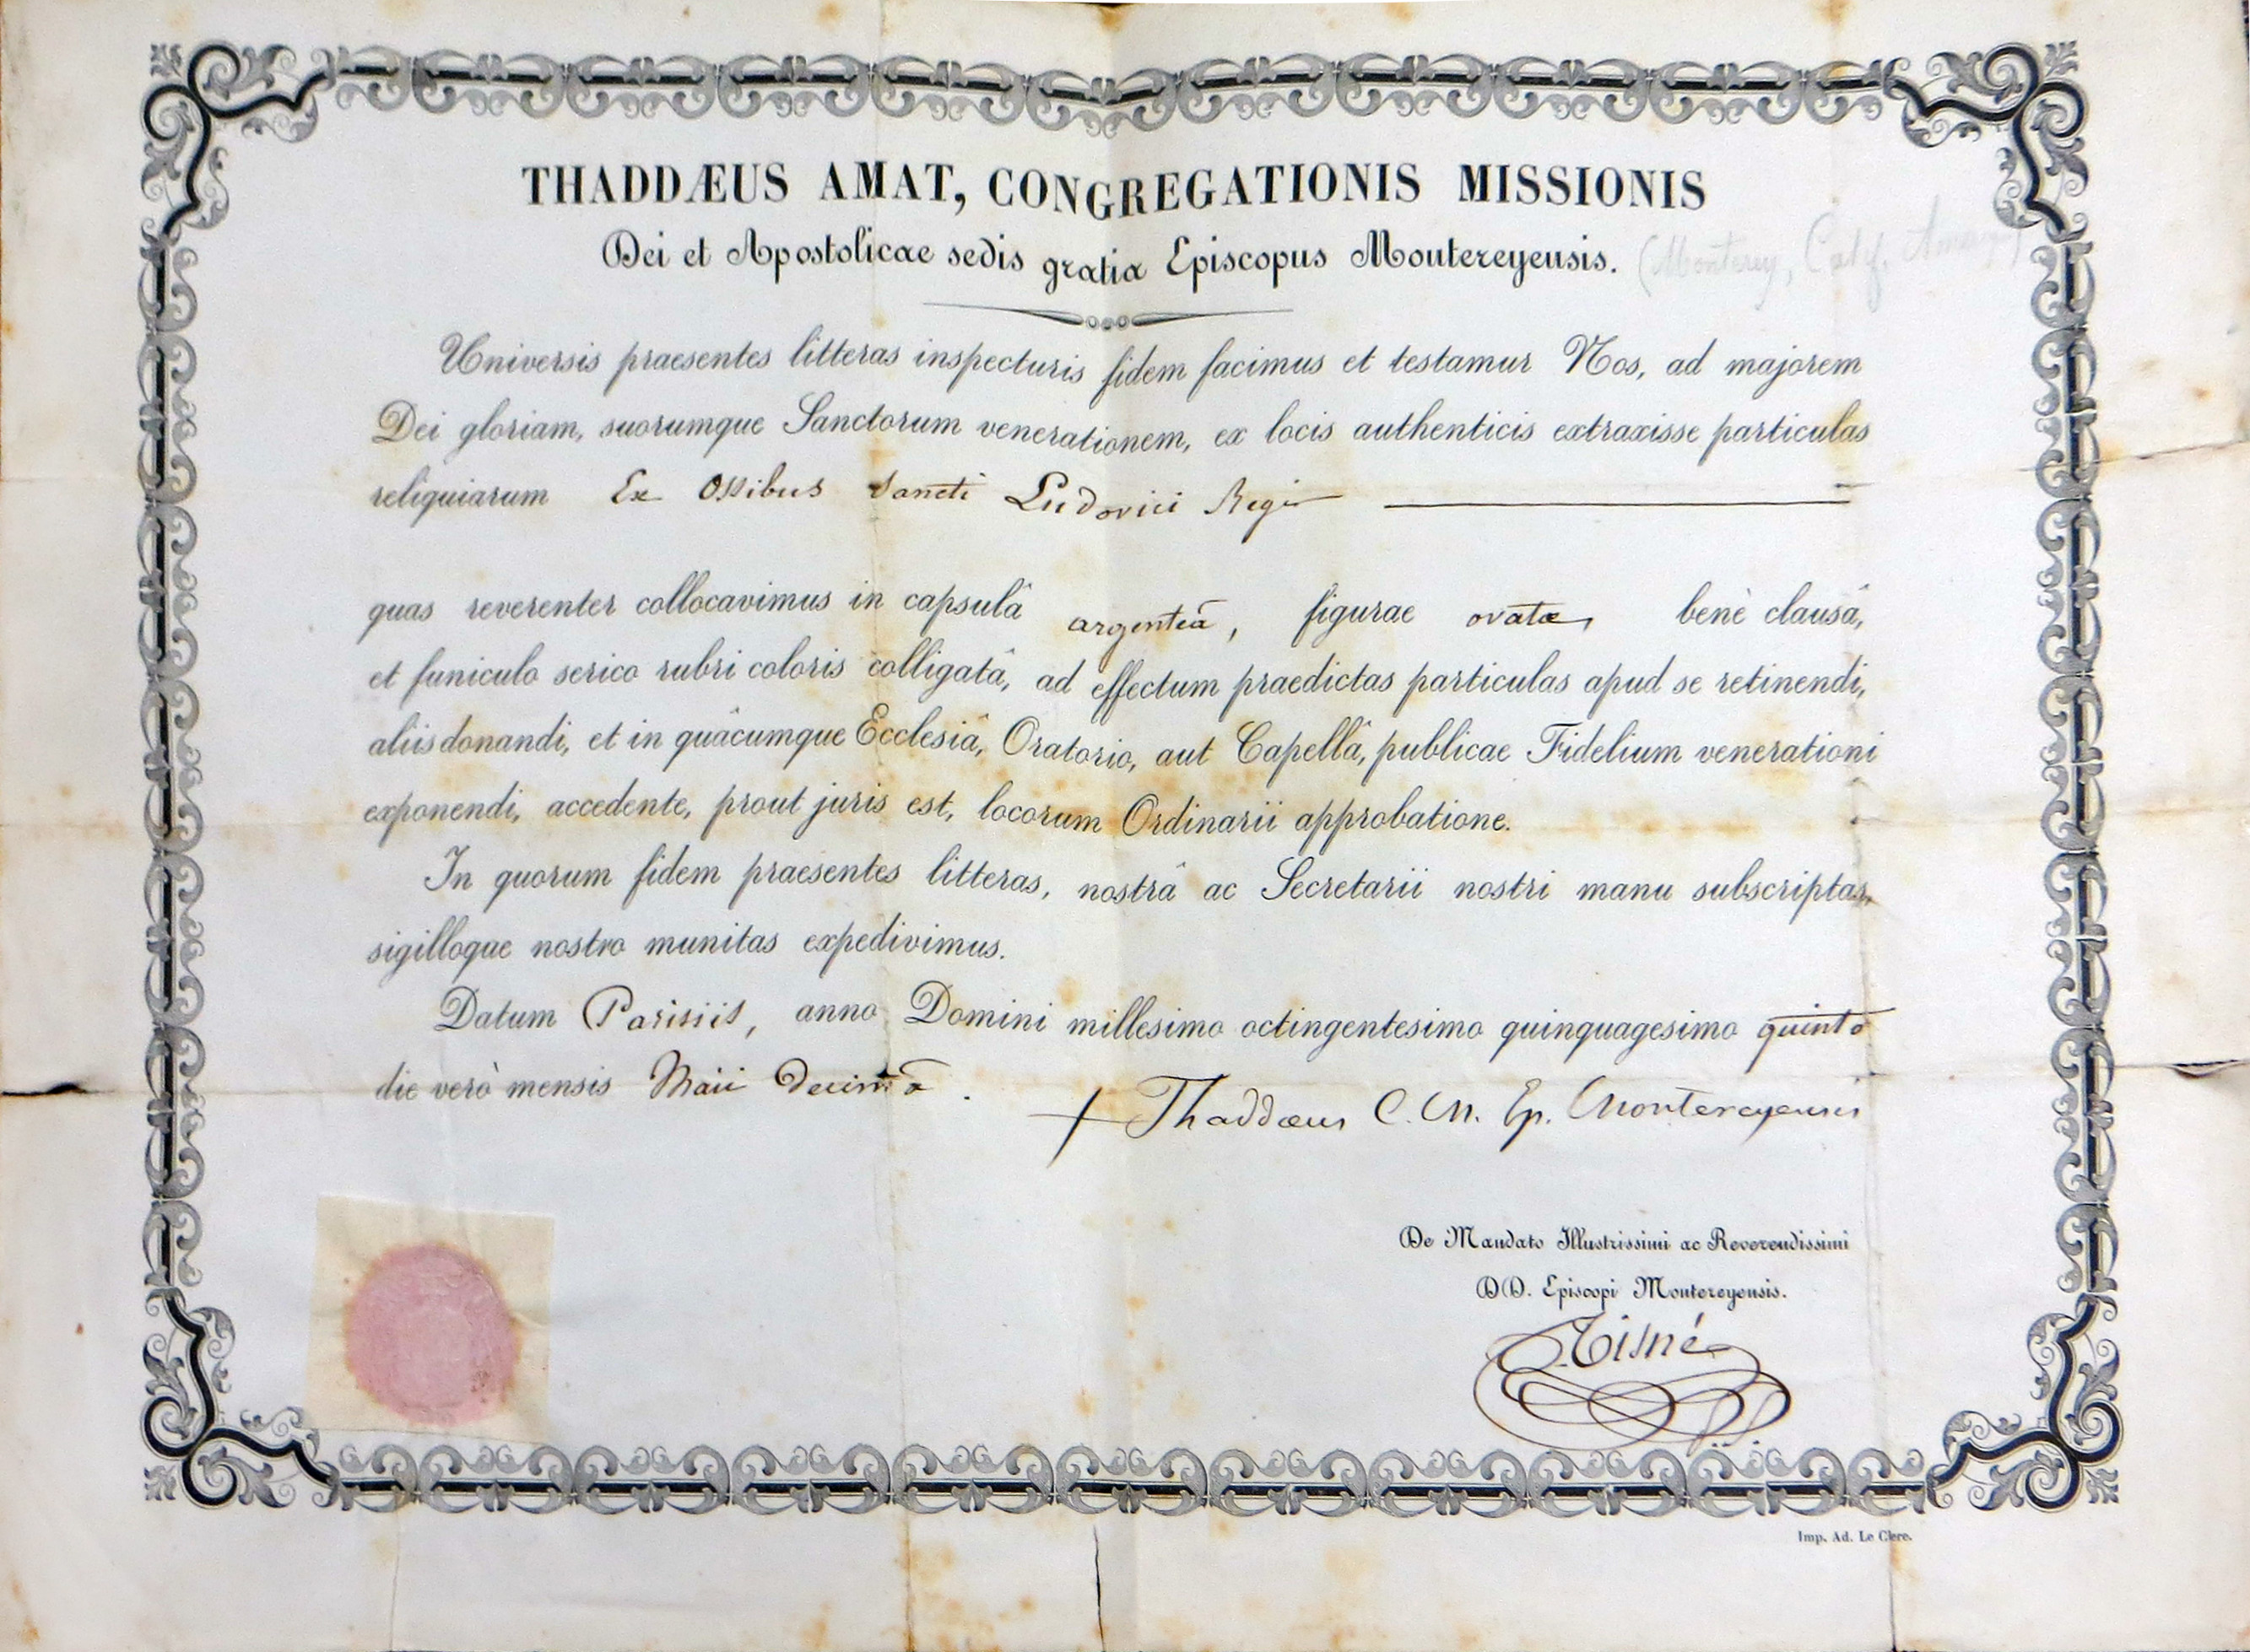 THADDÆUS AMAT, CONGREGATIONIS MISSIONIS
Dei et Apostolicae sedis gratia Episcopus Montereyensis. (Monterey, Calif. America)
Universis praesentes litteras inspecturis fidem facimus et testamur Nos, ad majorem
Dei gloriam, suorumque Sanctorum venerationem, ex locis authenticis extraxisse particulas
reliquiarum Ex Ossibus Sancti Ludovici Regis
quas reverenter collocavimus in capsulâ argenteâ, figurae ovatæ, benè clausâ,
et funiculo serico rubri coloris colligatâ, ad effectum praedictas particulas apud se retinendi,
aliis donandi, et in quâcumque Ecclesiâ, Oratorio, aut Capellâ, publicae Fidelium venerationi
exponendi, accedente, prout juris est, locorum Ordinarii approbatione.
In quorum fidem praesentes litteras, nostrâ ac Secretarii nostri manu subscriptas,
sigilloque nostro munitas expedivimus.
Datum Parisiis, anno Domini millesimo octingentesimo quinquagesimo quinto
die verò mensis Maii Decimâ.
+ Thaddæus C. M. Ep. Montereyensis
De Mandato Illustrissimi ac Reverendissimi
DD. Episcopi Montereyensis.
Tisné
Imp. Ad. Le Clere.